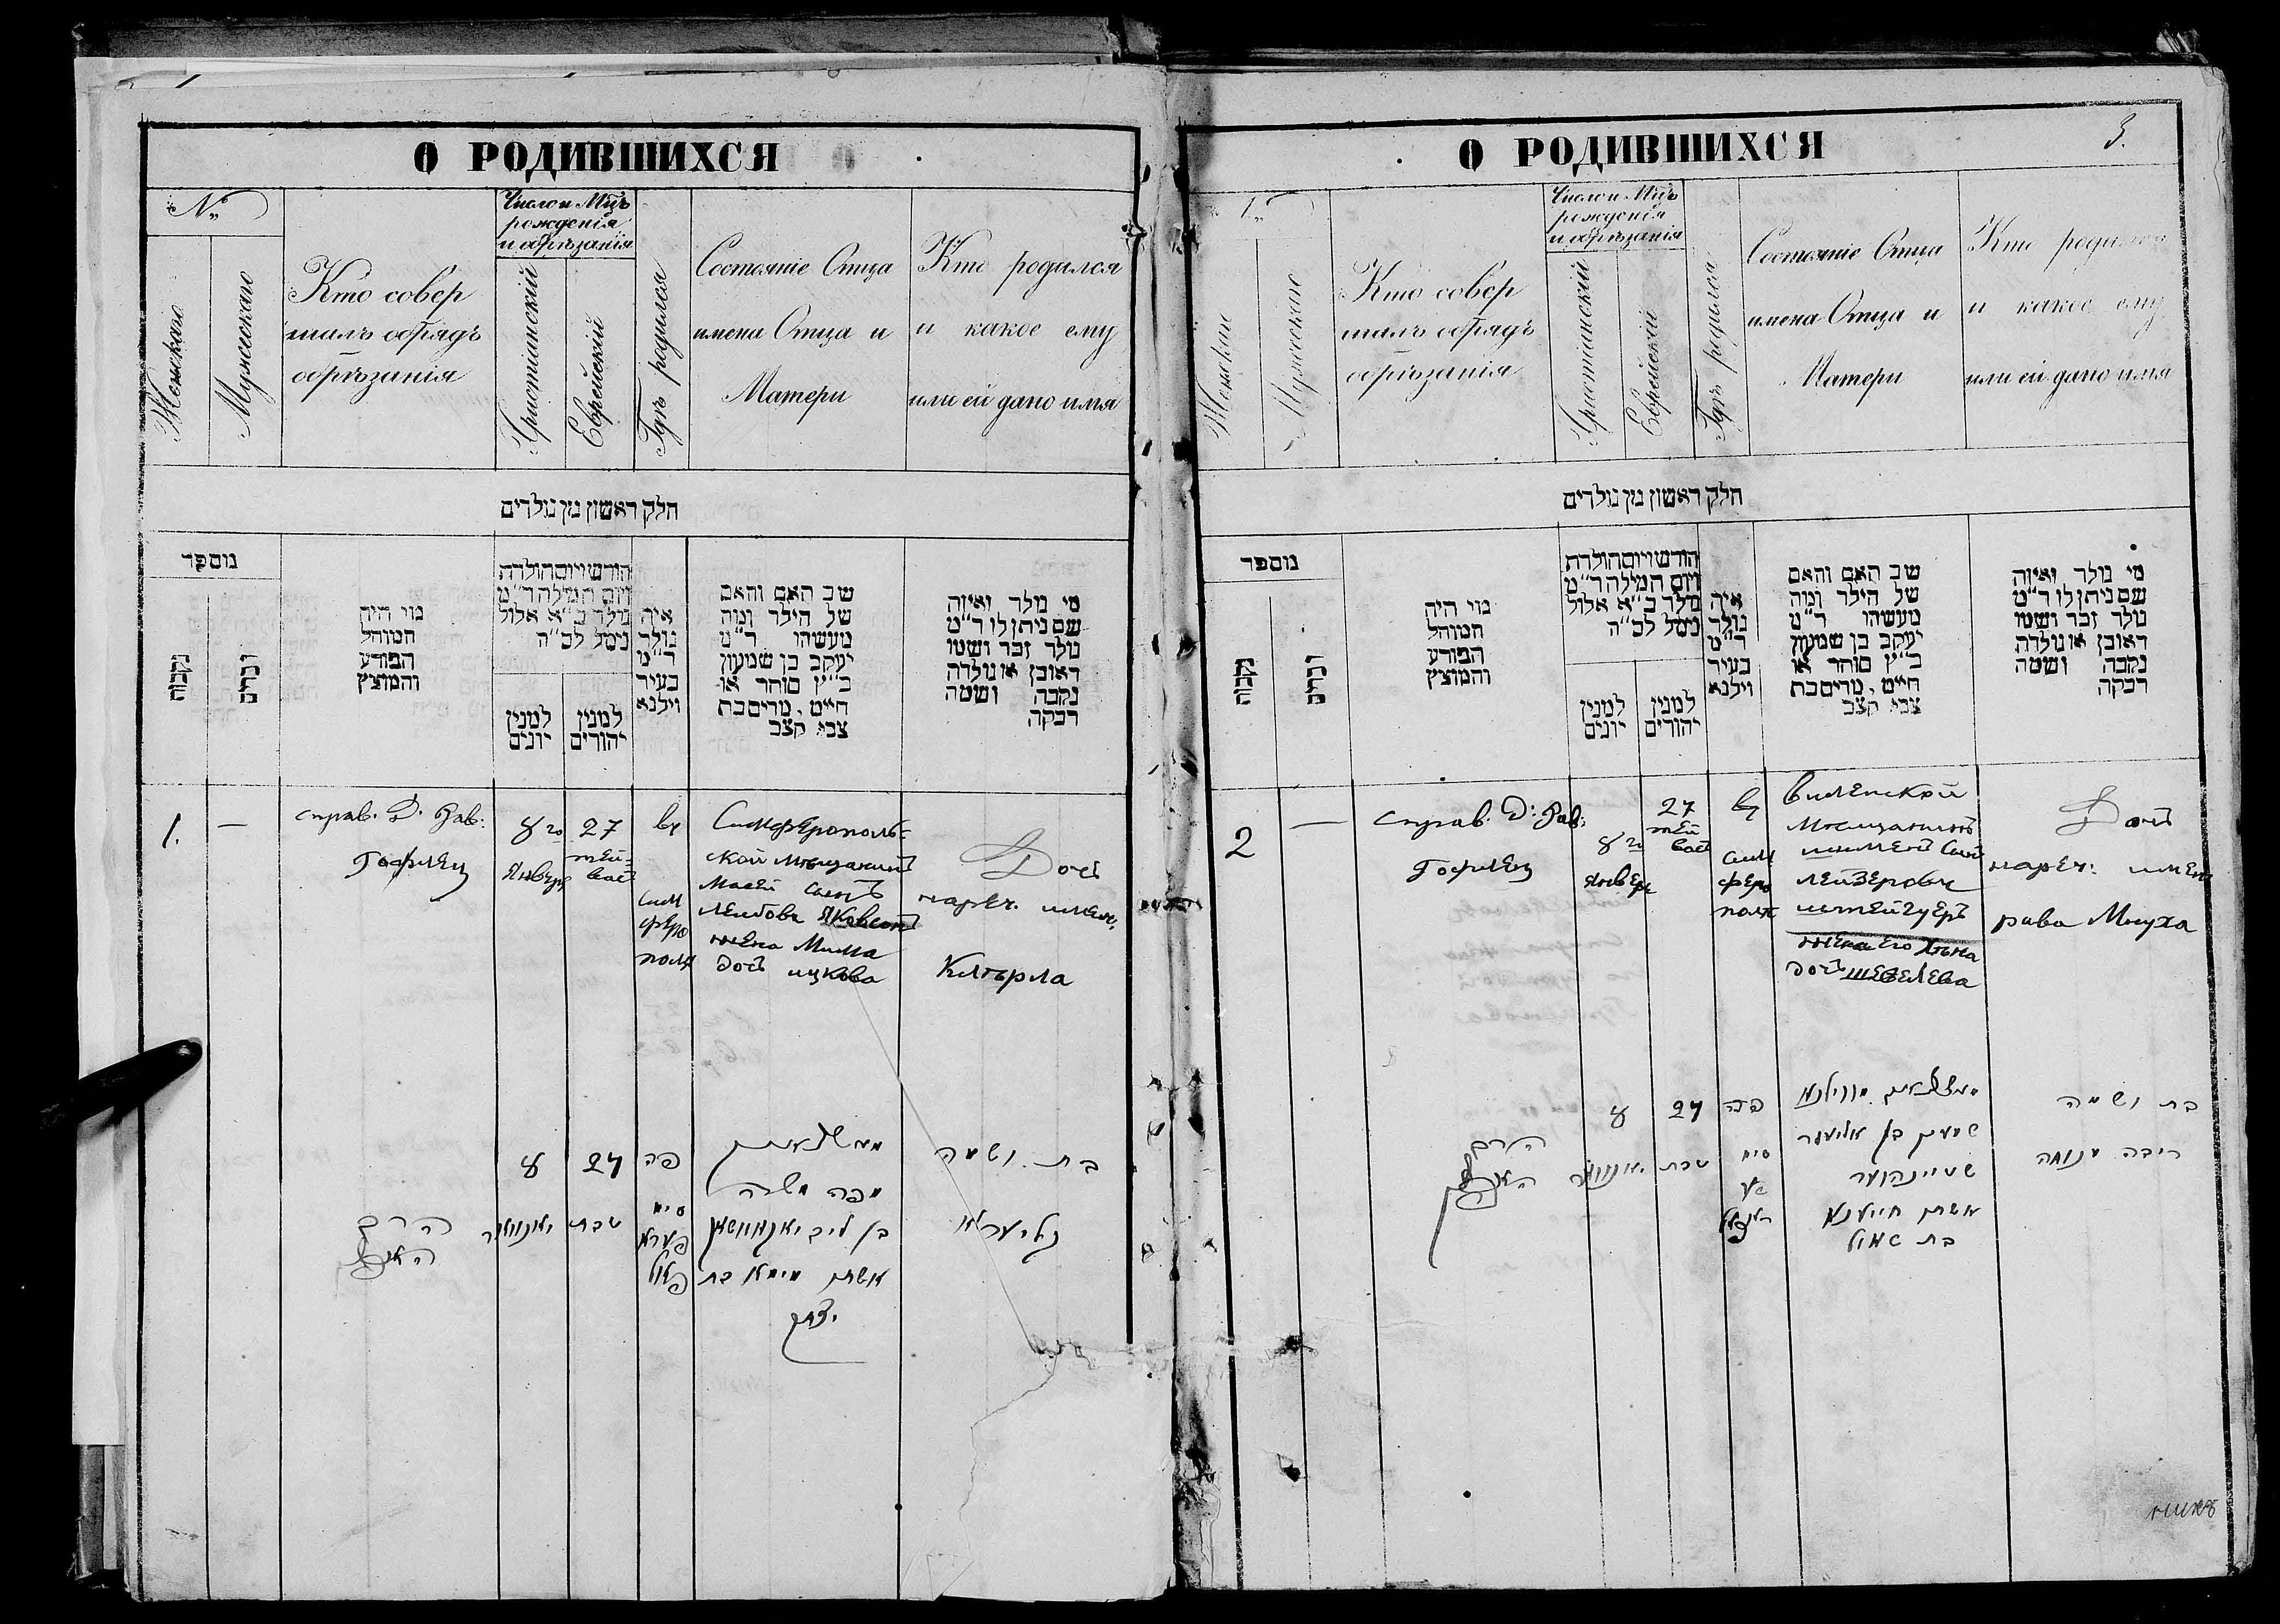 О РОДИВШИХСЯ
№
Женскаго
Мужескаго
Кто совер
шалъ обрядъ
обрѣзанія
Число и Мцъ
рожденія
и обрѣзанія
Христіанскій
Еврейскій
Гдѣ родился
Состояніе Отца
имена Отца и
Матери
Кто родился
и какое ему
или ей дано имя
חלק ראשון מן נולדים
מספר
נקבות
זכרים
מי היה
המוהל
הפורע
והמוצץ
חודש ויום הולדת
ויום המילה ר"מ
נולד כ"א אלול
נימל לכ"ה
למנין
יונים
למנין
יהודים
איה
נולד
ר"מ
בעיר
וילנא
שב האם והאם
של הילד ומה
מעשיהו ר"מ
יעקב בן שמעון
כ"ץ סוחר או
חייט, מרים בת
צבי קצב
מי נולד ואיזה
שם ניתן לו ר"מ
נולד זכר ושמו
ראובן או נולדה
נקבה ושמה
רבקה
1.
—
справ. Д. Рав:
Гофлец
8 го
Январ
27
тей-
вас
въ
Сим
феро
полѣ
Симферополь-
ской мѣщанинъ
Масей сынъ
Лейбовъ
жена Мима
дочь ицкова
Дочь
нареч. имен.
Клѣрла
הרב
8
יאנוואר
27
טבת
פה
סים
פערא
פאל
מפה משה
אשתו מימא בת
יצחק
בת ושמה
О РОДИВШИХСЯ
3.
Женскаго
Мужескаго
Кто совер
шалъ обрядъ
обрѣзанія
Число и Мцъ
рожденія
и обрѣзанія
Христіанскій
Еврейскій
Гдѣ родился
Состояніе Отца
имена Отца и
Матери
Кто родился
и какое ему
или ей дано имя
חלק ראשון מן נולדים
מספר
נקבות
זכרים
מי היה
המוהל
הפורע
והמוצץ
חודש ויום הולדת
ויום המילה ר"מ
נולד כ"א אלול
נימל לכ"ה
למנין
יונים
למנין
יהודים
איה
נולד
ר"מ
בעיר
וילנא
שב האם והאם
של הילד ומה
מעשיהו ר"מ
יעקב בן שמעון
כ"ץ סוחר או
חייט, מרים בת
צבי קצב
מי נולד ואיזה
שם ניתן לו ר"מ
נולד זכר ושמו
ראובן או נולדה
נקבה ושמה
רבקה
2
—
справ. Д: Рав:
Гофлец
8 го
Январ
27
тей
вас
въ
сим
феро
полѣ
виленской
мѣщанинъ
шлиена сынъ
лейзеровъ
штейнгуеръ
жена его Хьена
дочь шевелева
Дочь
нареч: имен
рива Мнуха
8
יאנוואר
27
טבת
פה
סים
מווילנא
בן אליעזר
שטיינהויער
אשתו חיענא
בת שאול
בת ושמה
ריבה מנוחה